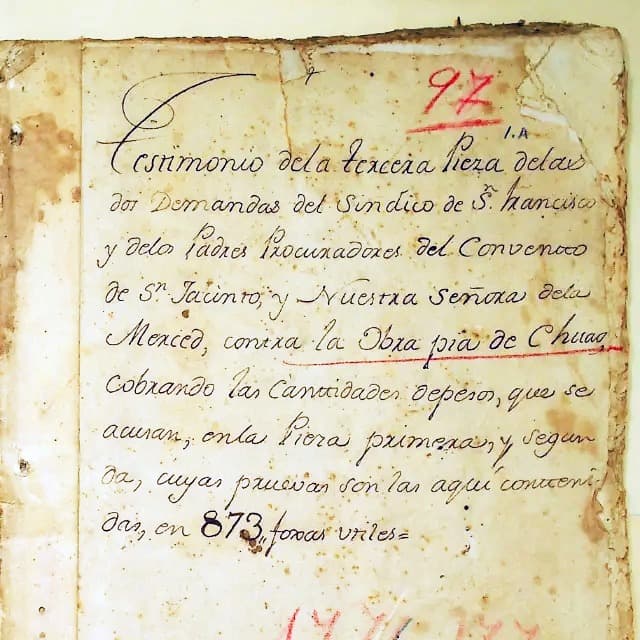 97
1.A
Testimonio dela tercera Pieza delas
dos Demandas del Sindico de Sn. Francisco
y delos Padres Procuradores del Convento
de Sn. Jacinto, y Nuestra Señora dela
Merced, contra la Obra pia de Chuao,
cobrando las Canttidades depesos, que se
acusan, enla Pieza primera, y segun
da, cuyas pruevas son las aquí conteni
das, en 873,, foxas utiles=